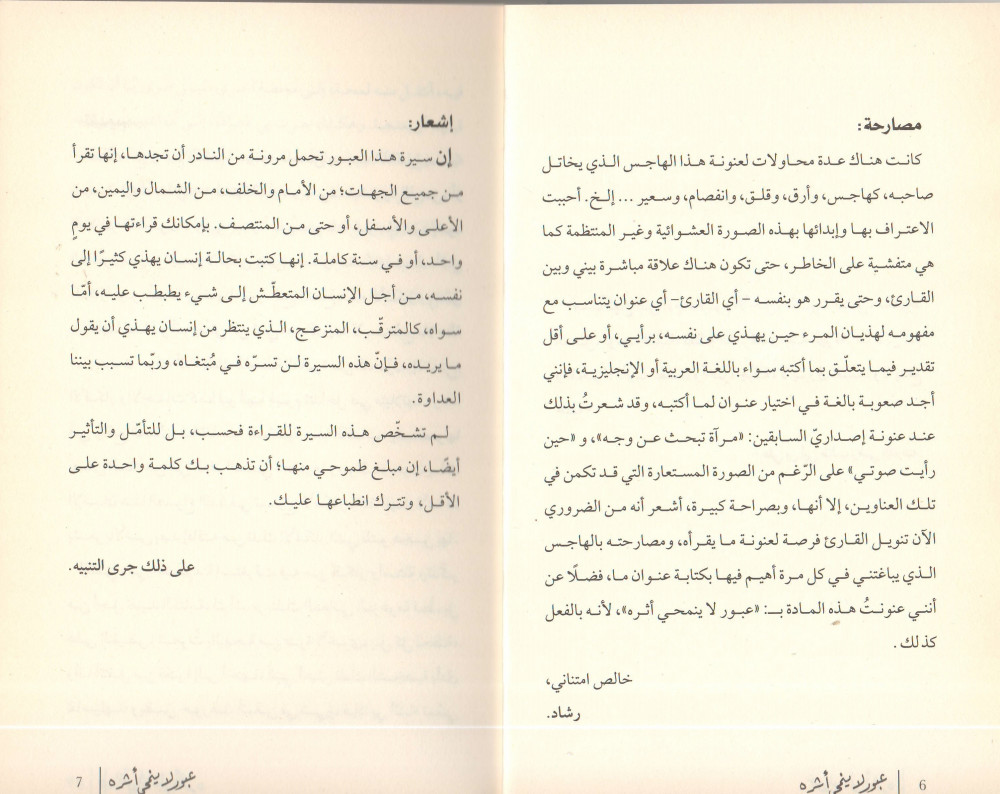 مصارحة:
كانت هناك عدة محاولات لعنونة هذا الهاجس الذي يخاتل
صاحبه، كهاجس، وأرق، وقلق، وانفصام، وسعير ... إلخ. أحببت
الاعتراف بها وإبدائها بهذه الصورة العشوائية وغير المنتظمة كما
هي متفشية على الخاطر، حتى تكون هناك علاقة مباشرة بيني وبين
القارئ، وحتى يقرر هو بنفسه – أي القارئ– أي عنوان يتناسب مع
مفهومه لهذيان المرء حين يهذي على نفسه، برأيي، أو على أقل
تقدير فيما يتعلّق بما أكتبه سواء باللغة العربية أو الإنجليزية، فإنني
أجد صعوبة بالغة في اختيار عنوان لما أكتبه، وقد شعرتُ بذلك
عند عنونة إصداريّ السابقين: «مرآة تبحث عن وجه»، و «حين
رأيت صوتي» على الرّغم من الصورة المستعارة التي قد تكمن في
تلك العناوين، إلا أنها، وبصراحة كبيرة، أشعر أنه من الضروري
الآن تنويل القارئ فرصة لعنونة ما يقرأه، ومصارحته بالهاجس
الذي يباغتني في كل مرة أهيم فيها بكتابة عنوان ما، فضلًا عن
أنني عنونتُ هذه المادة بـ: «عبور لا ينمحي أثره»، لأنه بالفعل
كذلك.
خالص امتناني،
رشاد.
6 | عبور لا ينمحي أثره
إشعار:
إن سيرة هذا العبور تحمل مرونة من النادر أن تجدها، إنها تقرأ
من جميع الجهات؛ من الأمام والخلف، من الشمال واليمين، من
الأعلى والأسفل، أو حتى من المنتصف. بإمكانك قراءتها في يومٍ
واحد، أو في سنة كاملة. إنها كتبت بحالة إنسان يهذي كثيرًا إلى
نفسه، من أجل الإنسان المتعطّش إلى شيء يطبطب عليه، أمّا
سواه، كالمترقّب، المنزعج، الذي ينتظر من إنسان يهذي أن يقول
ما يريده، فإنّ هذه السيرة لن تسرّه في مُبتغاه، وربّما تسبب بيننا
العداوة.
لم تشخّص هذه السيرة للقراءة فحسب، بل للتأمّل والتأثير
أيضًا، إن مبلغ طموحي منها؛ أن تذهب بك كلمة واحدة على
الأقل، وتترك انطباعها عليك.
على ذلك جرى التنبيه.
عبور لا ينمحي أثره | 7